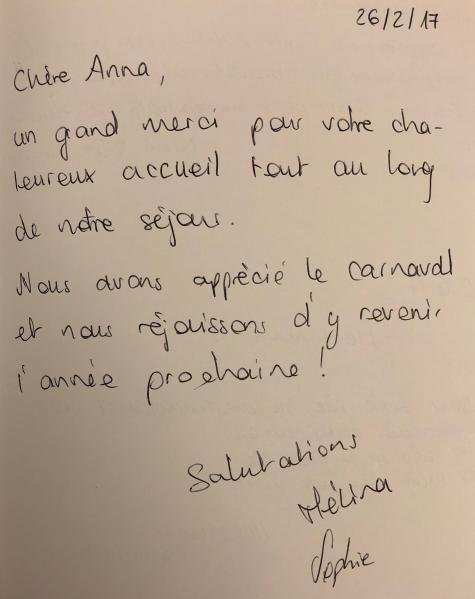 26/2/17
Chère Anna,
un grand merci pour votre cha-
leureux accueil tout au long
de notre séjour.
Nous avons apprécié le carnaval
et nous réjouissons d'y revenir
l'année prochaine !
Salutations
Mélina
Sophie